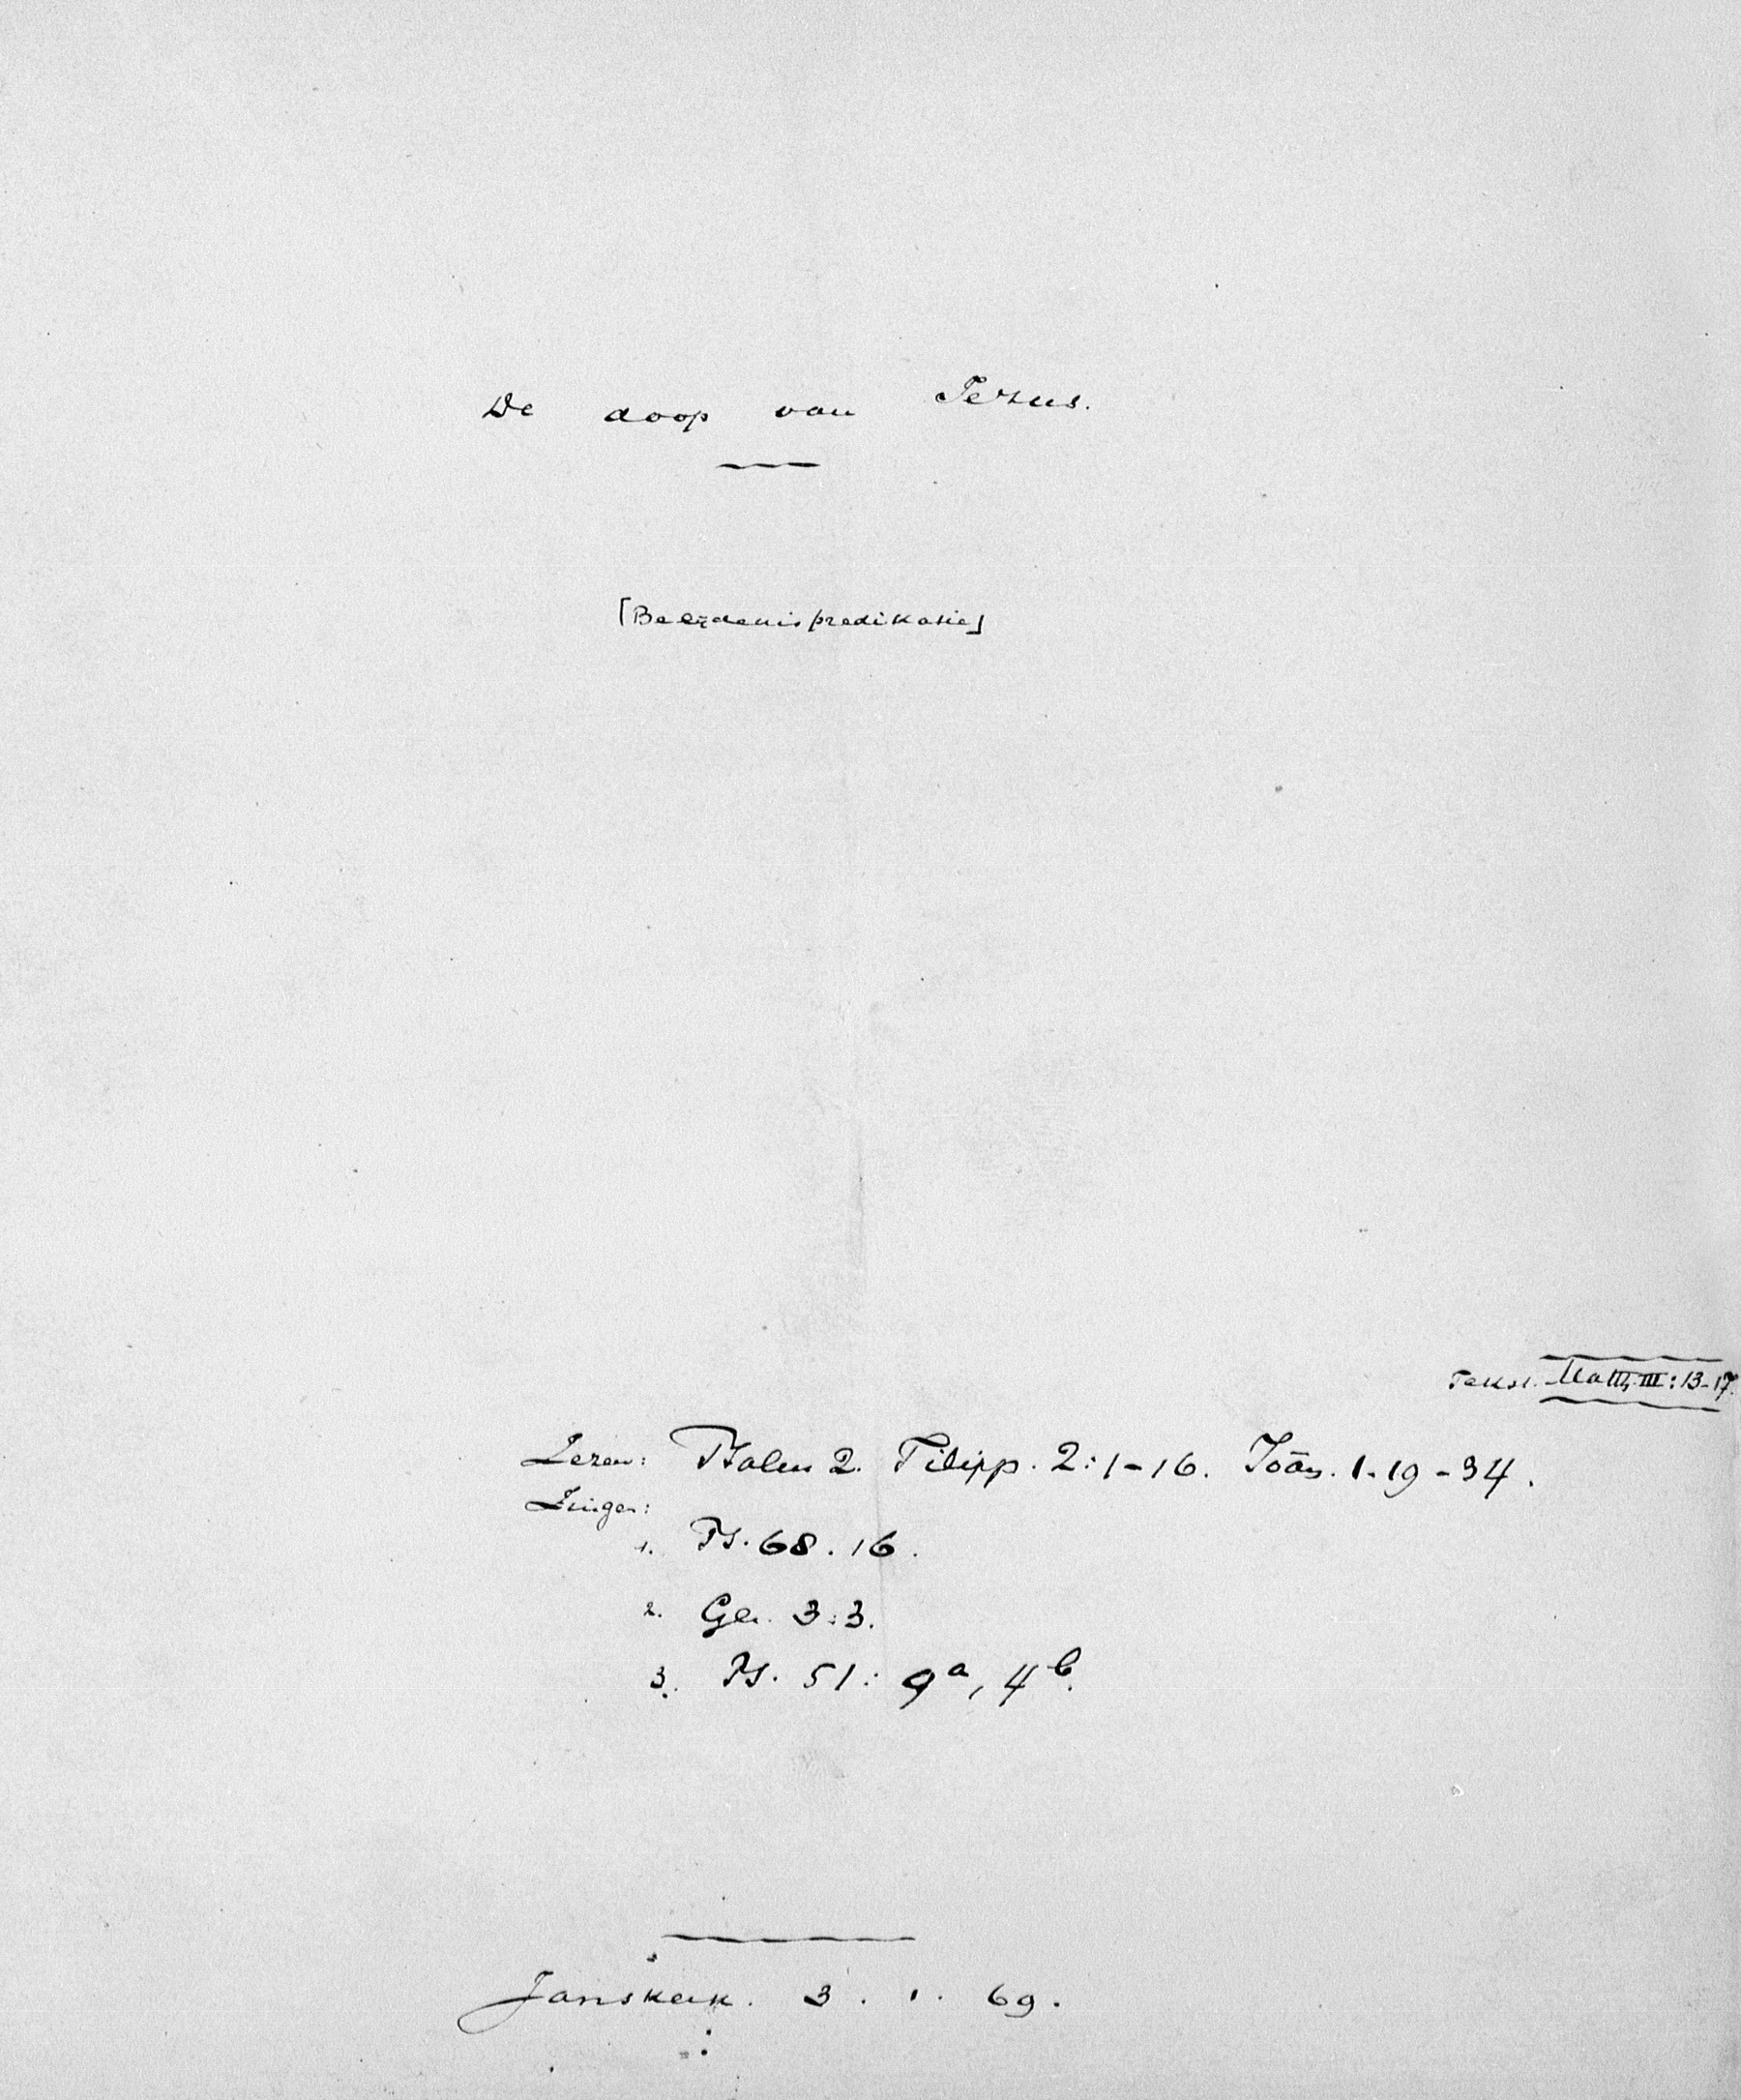 De doop van Jezus.
[Beërdenispredikatie]
Tekst. Matth. III: 13-17.
Lezen: Psalm 2. Filipp. 2:1-16. Joän. 1.19-34.
Zingen:
1. Ps. 68. 16.
2. Gez. 3:3.
3. Ps. 51: 9a, 4b.
Janskerk. 3. 1. 69.